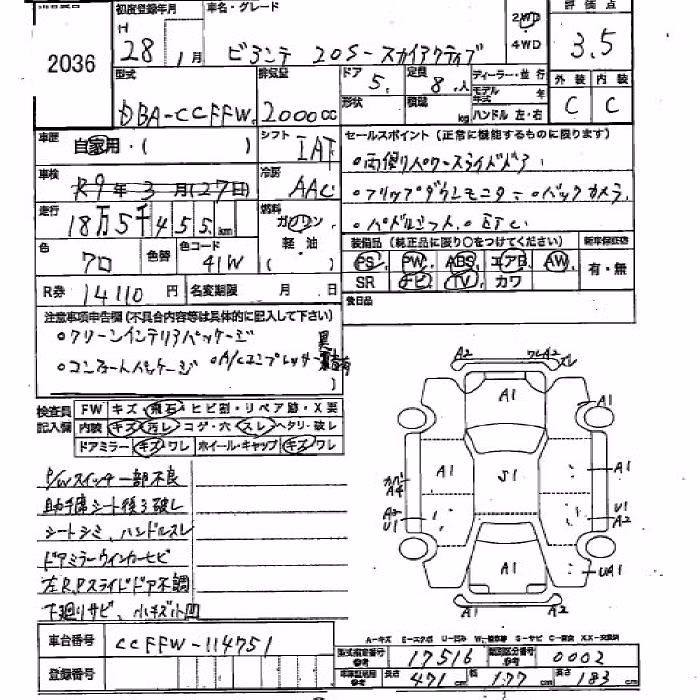 2036
初度登録年月 車名・グレード 評価点
H 28 / 1月 ビアンテ 20S-スカイアクティブ 2WD 4WD 3.5
型式 排気量 ドア 5. 定員 8.人 ディーラー・並行 外装 内装
DBA-CCFFW. 2000cc 形状 積載 kg モデル年式 年 ハンドル 左・右 C C
車歴 自家用・( ) シフト IAT セールスポイント(正常に機能するものに限ります)
。両側リパワースライドドア.
車検 R9年3月(27日) 冷房 AAC
。フリップダウンモニター 。バックカメラ.
走行 18万5千455km 燃料 ガソリン 軽油 ( )
。パドルシフト.。ETC.
色 クロ 色替 色コード 41W
装備品(純正品に限り○をつけてください) 新車保証書
PS. PW. ABS. エアB. AW. 有・無
SR ナビ. TV. カワ
R券 14110円 名変期限 月 日 後日品
注意事項申告欄(不具合内容等は具体的に記入して下さい)
。クリーンインテリアパッケージ
。コンフォートパッケージ 。A/Cコンプレッサー異音有
検査員記入欄
FW キズ・飛石・ヒビ割・リペア跡・X要
内装 キズ・汚レ・コゲ・穴・スレ・ヘタリ・破レ
ドアミラー キズ・ワレ ホイール・キャップ キズ・ワレ
P/Wスイッチ一部不良
助手席シート後ろ破レ
シートシミ、ハンドルスレ
ドアミラーウインカーヒビ
左R.Pスライドドア不調
下廻りサビ、小キズ小凹
A2 ワレA2 スレ
A1
A1
カバーA4 A1 S1 A1
A2 U1 U1 A2
A1 UA1
A1 A2
A-キズ E-エクボ U-凹み W-補修跡 S-サビ C-腐食 XX-交換済
車台番号 CCFFW-114751
型式指定番号 参考 17516 類別区分番号 参考 0002
登録番号
車庫証明用 参考 長さ 471cm 幅 177cm 高さ 183cm